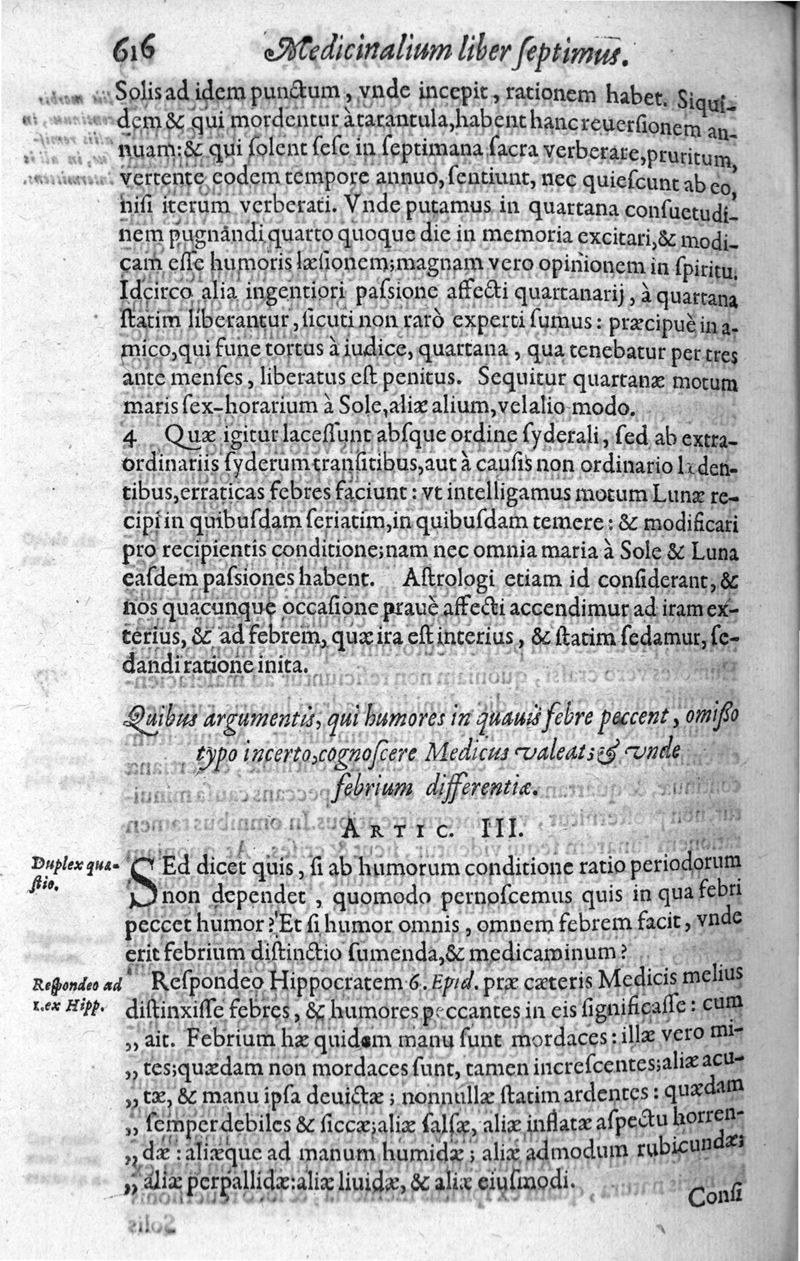 616 Medicinalium liber ſeptimus.
Solis ad idem punctum, vnde incepit, rationem habet. Siqui-
dem & qui mordentur à tarantula, habent hanc reuerſionem an-
nuam: & qui ſolent ſeſe in ſeptimana ſacra verberare, pruritum,
vertente eodem tempore annuo, ſentiunt, nec quieſcunt ab eo,
niſi iterum verberati. Vnde putamus in quartana conſuetudi-
nem pugnandi quarto quoque die in memoria excitari, & modi-
cam eſſe humoris læſionem; magnam vero opinionem in ſpiritu.
Idcirco alia ingentiori paſsione affecti quartanarij, à quartana
ſtatim liberantur, ſicuti non rarò experti ſumus: præcipuè in a-
mico, qui fune tortus à iudice, quartana, qua tenebatur per tres
ante menſes, liberatus eſt penitus. Sequitur quartanæ motum
maris ſex-horarium à Sole, aliæ alium, vel alio modo.
4 Quæ igitur laceſſunt abſque ordine ſyderali, ſed ab extra-
ordinariis ſyderum tranſitibus, aut à cauſis non ordinario læden-
tibus, erraticas febres faciunt: vt intelligamus motum Lunæ re-
cipi in quibuſdam ſeriatim, in quibuſdam temere: & modificari
pro recipientis conditione; nam nec omnia maria à Sole & Luna
eaſdem paſsiones habent. Aſtrologi etiam id conſiderant, &
nos quacunque occaſione prauè affecti accendimur ad iram ex-
terius, & ad febrem, quæ ira eſt interius, & ſtatim ſedamur, ſe-
dandi ratione inita.
Quibus argumentis, qui humores in quauis febre peccent, omiſſo
typo incerto, cognoſcere Medicus valeat; & vnde
febrium differentiæ.
ARTIC. III.
Duplex quæ-
ſtio.
SEd dicet quis, ſi ab humorum conditione ratio periodorum
non dependet, quomodo pernoſcemus quis in qua febri
peccet humor? Et ſi humor omnis, omnem febrem facit, vnde
erit febrium diſtinctio ſumenda, & medicaminum?
Reſpondeo ad
1. ex Hipp.
Reſpondeo Hippocratem 6. Epid. præ cæteris Medicis melius
diſtinxiſſe febres, & humores peccantes in eis ſignificaſſe: cum
„ ait. Febrium hæ quidem manu ſunt mordaces: illæ vero mi-
„ tes; quædam non mordaces ſunt, tamen increſcentes; aliæ acu-
„ tæ, & manu ipſa deuictæ; nonnullæ ſtatim ardentes: quædam
„ ſemper debiles & ſiccæ; aliæ ſalſæ, aliæ inflatæ aſpectu horren-
„ dæ: aliæque ad manum humidæ; aliæ admodum rubicundæ;
„ aliæ perpallidæ: aliæ liuidæ, & aliæ eiuſmodi.
Conſi